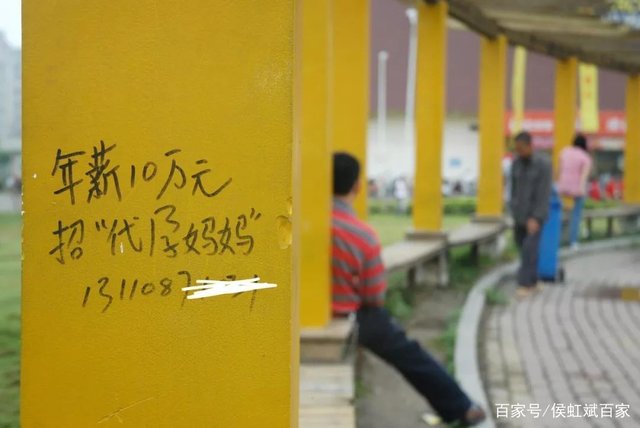 年薪10万元
招"代孕妈妈"
1311087
百家号/侯虹斌百家